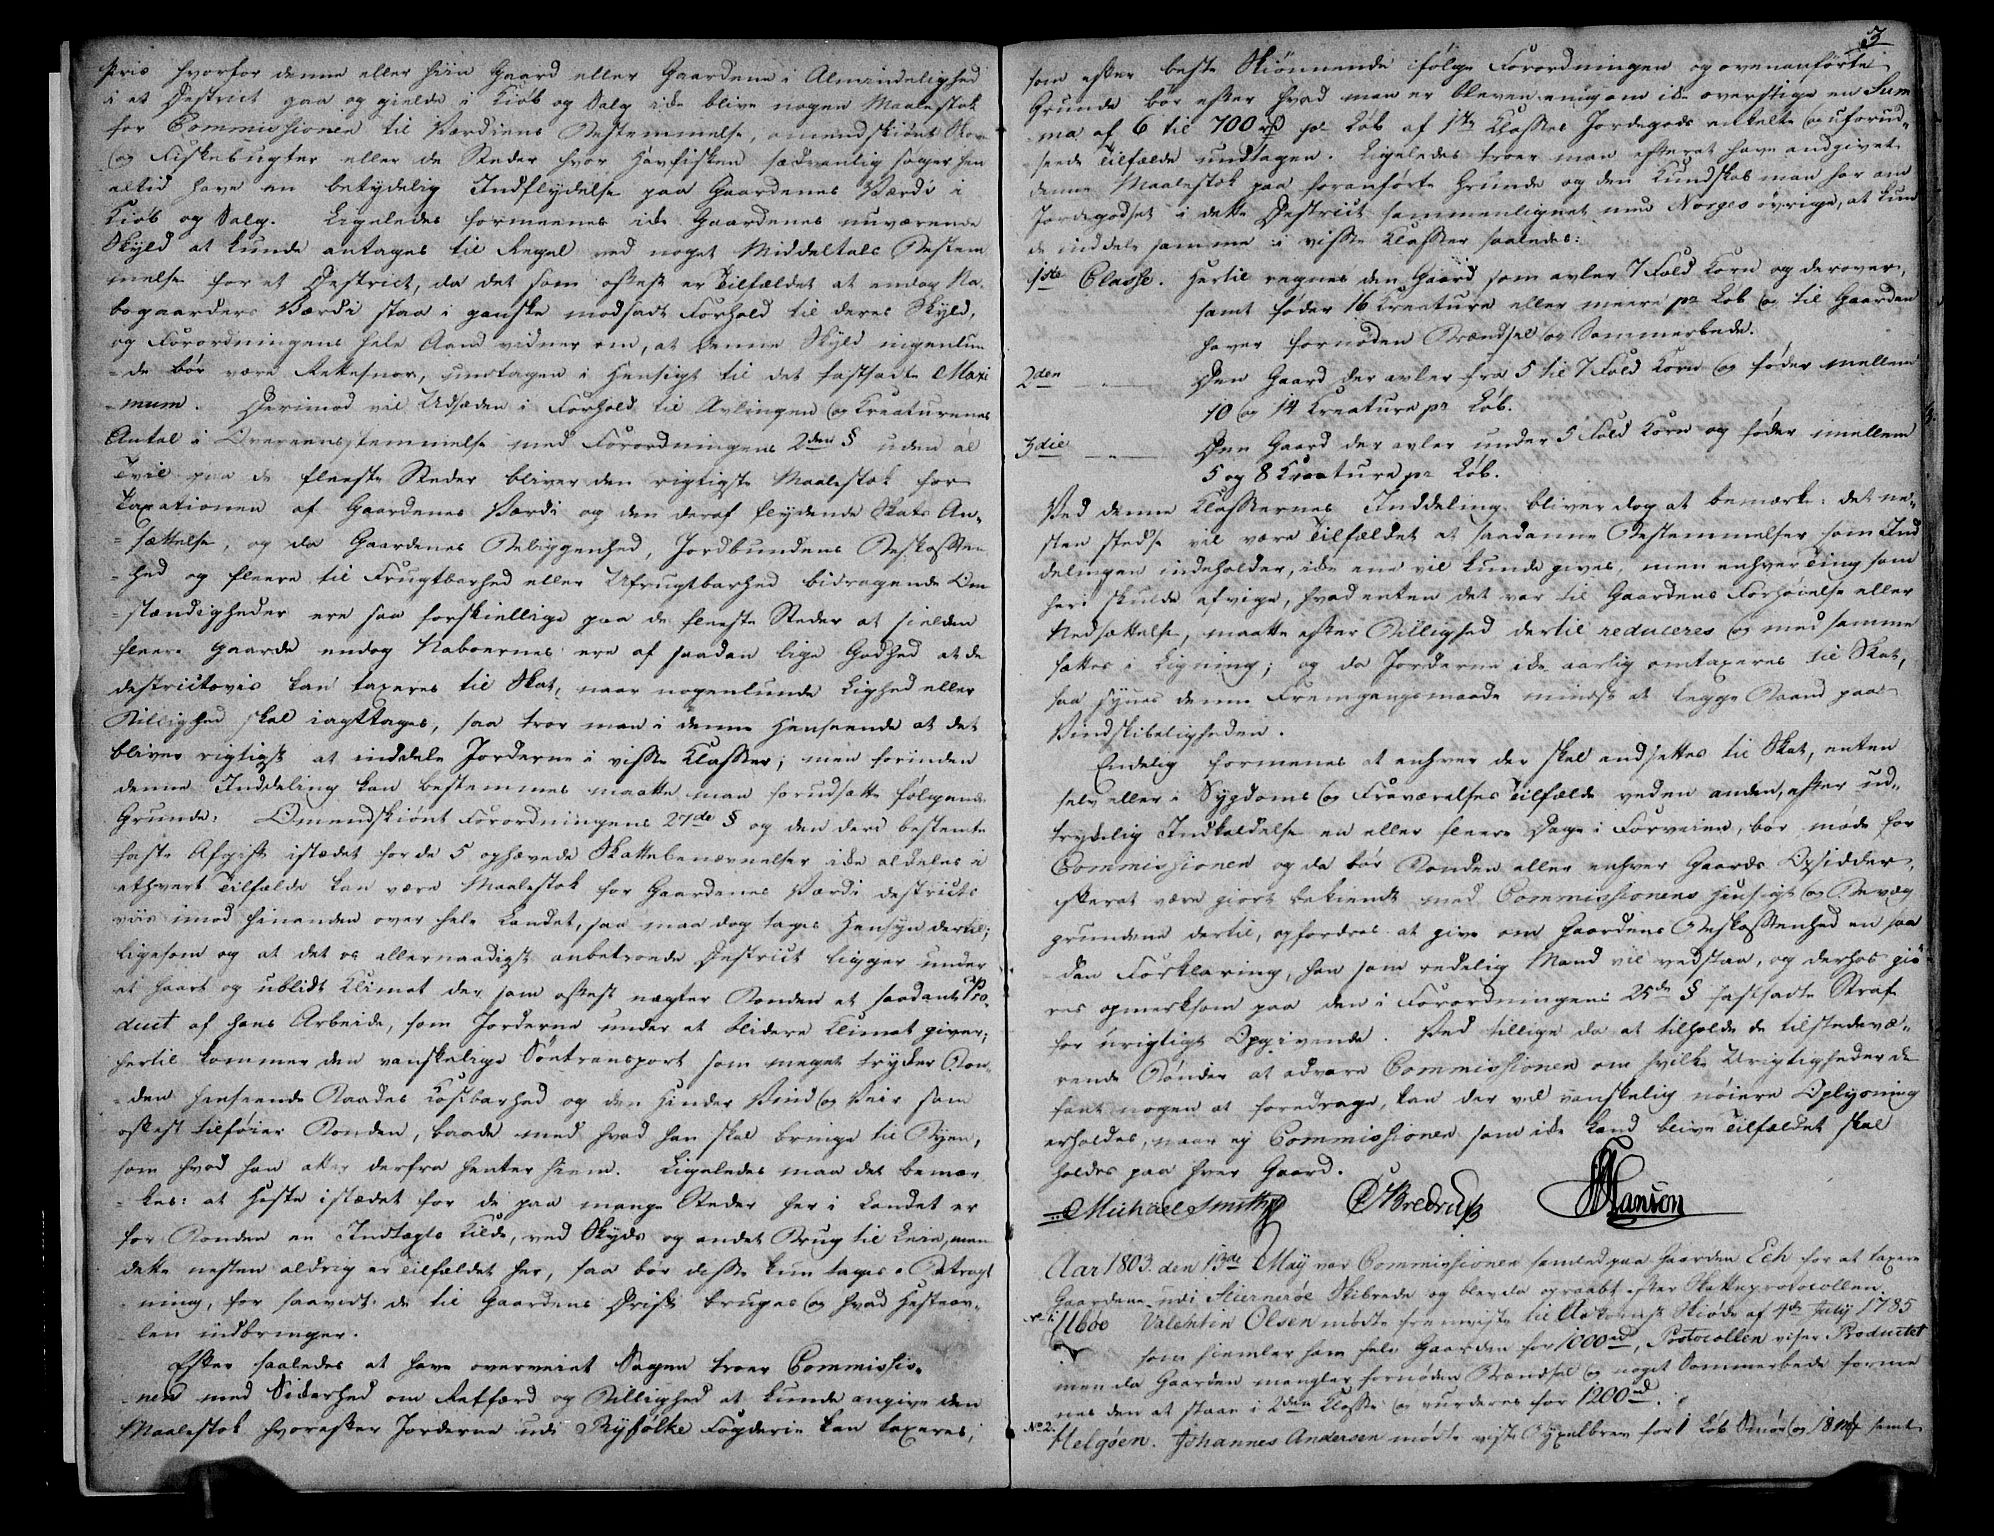 Priis hvorfor denne eller hiin Gaard eller Gaardene i Almindelighed
i et District gaa og gielde i Kiøb og Salg ikke blive nogen Maalestok
for Commissionen til Værdiens Bestemmelse, omendskiønt Skov
og Fiskebugter eller de Steder hvor Havfisken sædvanlig søger hen
altid have en betydelig Indflydelse paa Gaardenes Værdi i
Kiøb og Salg. Ligeledes formeenes ikke Gaardenes nuværende
Skyld at kunde antages til Regel ved noget Middeltals Bestem
melse for et District, da det som oftest er Tilfældet at endog Na-
bogaarders Værdi staa i ganske modsadt Forhold til deres Skyld,
og Forordningens hele Aand vidner om, at denne Skyld ingenlun
de bør være Rettesnor, undtagen i Hensigt til det fastsadte Maxi
mum. Derimod vil Udsæden i Forhold til Avlingen og Kreaturenes
Antal i Overeensstemmelse med Forordningens 2den § uden al
Tvil paa de fleeste Steder bliver den rigtigste Maalestok for
Taxationen af Gaardenes Værdi og den deraf flydende Skats An-
sættelse, og da Gaardenes Beliggenhed, Jordbundens Beskaffen
hed og fleere til Frugtbarhed eller Ufrugtbarhed bidragende Om
stændigheder ere saa forskiellige paa de fleeste Steder at sielden
fleere Gaarde endog Naboernes ere af saadan lige Godhed at de
districtsviis kan taxeres til Skat, naar nogenlunde Lighed eller
Billighed skal iagttages, saa troer man i denne Henseende at det
bliver rigtigst at inddele Jorderne i visse Klasser; men forinden
denne Inddeling kan bestemmes maatte man forudsætte følgende
Grunde: Omendskiønt Forordningens 27de § og den deri bestemte
faste Afgift istædet for de 5 ophævede Skattebenævnelser ikke aldeles i
ethvert Tilfælde kan være Maalestok for Gaardenes Værdi districts
viis imod hinanden over hele Landet, saa maa dog tages Hensyn dertil;
ligesom og at det os allernaadigst anbetroede District ligger under
et haart og ublidt Klimat der som oftest nægter Bonden et saadant Pro
duct af hans Arbeide, som Jorderne under et blidere Klimat giver;
hertil kommer den vanskelige Søetransport som meget trykker Bon-
den henseende Baades Kostbarhed og den Hinder Vind og Veir som
oftest tilføier Bonden, baade med hvad han skal bringe til Byen,
som hvad han atter derfra henter hiem. Ligeledes maa det bemær
kes: at Heste istædet for de paa mange Steder her i Landet er
for Bonden en Indtægts Kilde, ved Skyds og andet Brug til Leie, men
dette nesten aldrig er Tilfældet her, saa bør disse kun tages i Betragt
ning, for saavidt de til Gaardens Drift bruges og hvad Hesteav-
len indbringer.
Efter saaledes at have overveiet Sagen troer Commissio-
nen med Sikkerhed om Retfærd og Billighed at kunde angive den
Maalestok hvorefter Jorderne udi Ryfølke Fogderie kan taxeres,
3
som efter beste Skiønnende ifølge Forordningen og ovenanførte
Grunde bør efter hvad man er bleven enig om ikke overstige en Sum
ma af 6 til 700 rd pr Løb af 1ste Klasses Jordegods enkelte og uforud-
seede Tilfælde undtagen. Ligeledes troer man efterat have angivet
denne Maalestok paa foranførte Grunde og den Kundskab man har om
Jordegodset i dette District sammenlignet med Norges øvrige, at kun
de inddele samme i visse Klasser saaledes:
1ste Classe. Hertil regnes den Gaard som avler 7 Fold Korn og derover,
samt føder 16 Kreature eller meere pr Løb og til Gaarden
haver fornøden Brændsel og Sommerbede.
2den — Den Gaard der avler fra 5 til 7 Fold Korn og føder mellem
10 og 14 Kreature pr Løb.
3die — Den Gaard der avler under 5 Fold Korn og føder imellem
5 og 8 Kreature pr Løb.
Ved denne Klassernes Inddeling bliver dog at bemærke: det ne-
sten stedse vil være Tilfældet at saadanne Bestemmelser som Ind
delingen indeholder, ikke ene vil kunde gives, men enhver Ting som
heri skulde afvige, hvad enten det var til Gaardens Forhøielse eller
Nedsættelse, maatte efter Billighed dertil reduceres og med samme
sættes i Ligning; og da Jorderne ikke aarlig omtaxeres til Skat,
saa synes denne Fremgangsmaade mindst at legge Baand paa
Vindskibeligheden.
Endelig formenes at enhver der skal andsettes til Skat, enten
selv eller i Sygdoms og Fraværelses Tilfælde ved en anden, efter ud-
trykkelig Indkaldelse en eller fleere Dage i Forveien, bør møde for
Commissionen og da bør Bonden eller enhver Gaards Opsidder,
efterat være giort bekiendt med Commissionens Hensigt og Bevæg
grundene dertil, opfordres at give om Gaardens Beskaffenhed en saa
dan Forklaring, han som redelig Mand vil vedstaa, og derhos giø
res opmerksom paa den i Forordningens 25de § fastsadte Straf
for urigtigt Opgivende. Ved tillige da at tilholde de tilstedevæ-
rende Bønder at advare Commissionen om hvilke Urigtigheder de
fant nogen at foredrage, kan der vel vanskelig nøiere Oplysning
erholdes, naar ey Commissionen som ikke kand blive Tilfældet skal
holdes paa hver Gaard.
Michael Smith Bredrup Hanson
Aar 1803. den 13de May var Commissionen samled paa Gaarden Ech for at taxere
Gaardene udi Stiernerøe Skibrede og blev da opraabt efter Skatteprotocollen.
No 1. Valentin Olsen mødte fremviste til Atkomst Skiøde af 4de July 1785
som hiemler ham selv Gaarden for 1000 rd, Protocollen viser Productet
men da Gaarden mangler fornøden Brændsel og noget Sommerbede forme
nes den at staae i 2den Klasse og vurderes for 1200 rd.
No 2. Helgøen. Johannes Andersen mødte viste Byxelbrev for 1 Løb Smør og 18 mk samt